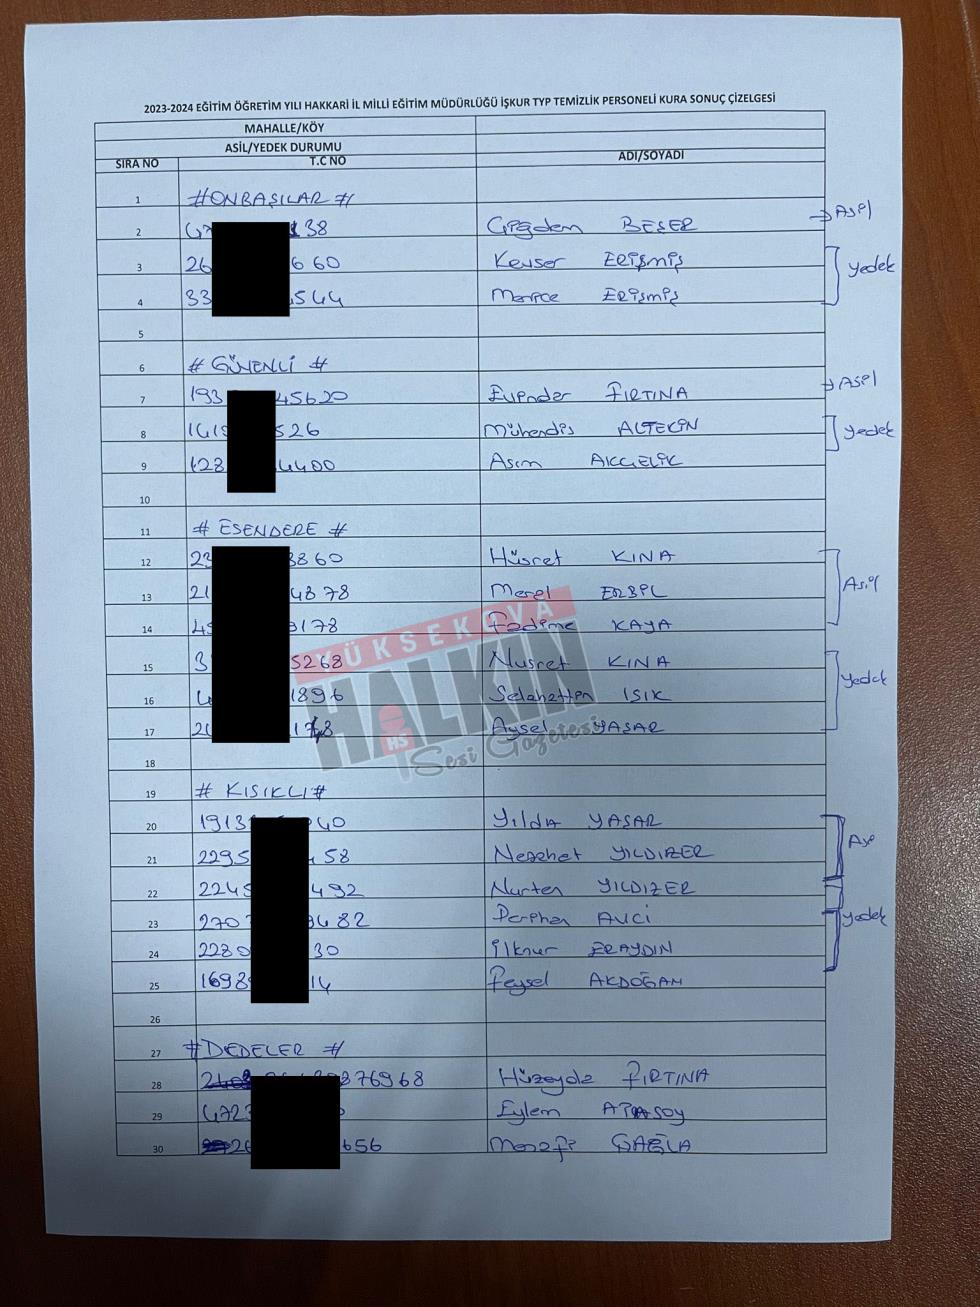 2023-2024 EĞİTİM ÖĞRETİM YILI HAKKARİ İL MİLLİ EĞİTİM MÜDÜRLÜĞÜ İŞKUR TYP TEMİZLİK PERSONELİ KURA SONUÇ ÇİZELGESİ
MAHALLE/KÖY
ASİL/YEDEK DURUMU
SIRA NO T.C NO ADI/SOYADI
1 #ONBAŞILAR #
2 138 Çiğdem BEŞER → Asil
3 26 660 Kevser ERİŞMİŞ Yedek
4 33 544 ERİŞMİŞ
5
6 # GÜVENLİ #
7 193 45620 Evindar FIRTINA → Asil
8 526 Mühendis ALTEKİN Yedek
9 128 4400 Asım AKÇELİK
10
11 # ESENDERE #
12 23 3860 Hüsret KINA
13 21 4878 Meral ERBİL Asil
14 9178 Fadime KAYA
15 3 5268 Nusret KINA
16 4 1896 Selahattin IŞIK Yedek
17 Aysel YAŞAR
18
19 # KISIKLI#
20 1913 40 Yılda YAŞAR
21 2295 58 Nezahet YILDIZER
22 2245 492 Nurten YILDIZER
23 270 482 Perihan AVCİ Yedek
24 2280 30 İlknur ERAYDIN
25 1698 14 Feysel AKDOĞAN
26
27 #DEDELER #
28 76968 Hüzeyde FIRTINA
29 4723 Eylem ATASOY
30 26 656 ÇAĞLA
YÜKSEKOVA
HALKIN
HS
Sesi Gazetesi